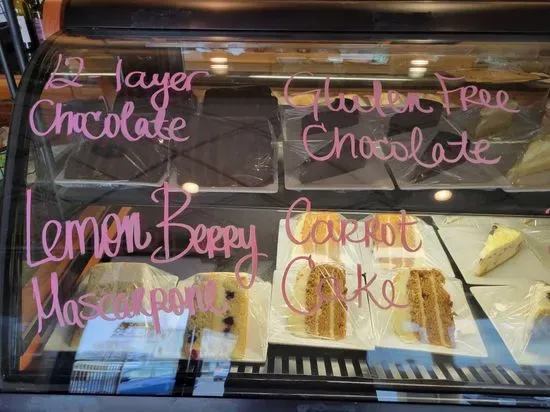 12-Layer
Chocolate
Gluten Free
Chocolate
Lemon Berry
Mascarpone
Carrot
Cake